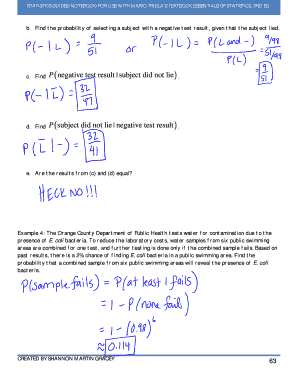 STATISTICS GUIDED NOTEBOOK FOR USE WITH MARIO TRIOLA'S TEXTBOOK ESSENTIALS OF STATISTICS, 3RD ED.
b. Find the probability of selecting a subject with a negative test result, given that the subject lied.
P(-|L) = 9/51 or P(-|L) = P(L and -)/P(L) = 9/98 / 51/98 = 9/51
c. Find P(negative test result | subject did not lie).
P(-|L̄) = 32/47
d. Find P(subject did not lie | negative test result).
P(L̄|-) = 32/41
e. Are the results from (c) and (d) equal?
HECK NO!!!
Example 4: The Orange County Department of Public Health tests water for contamination due to the
presence of E. coli bacteria. To reduce the laboratory costs, water samples from six public swimming
areas are combined for one test, and further testing is done only if the combined sample fails. Based on
past results, there is a 2% chance of finding E. coli bacteria in a public swimming area. Find the
probability that a combined sample from six public swimming areas will reveal the presence of E. coli
bacteria.
P(sample fails) = P(at least 1 fails)
= 1 - P(none fail)
= 1 - (0.98)⁶
≈ 0.114
CREATED BY SHANNON MARTIN GRACEY
63